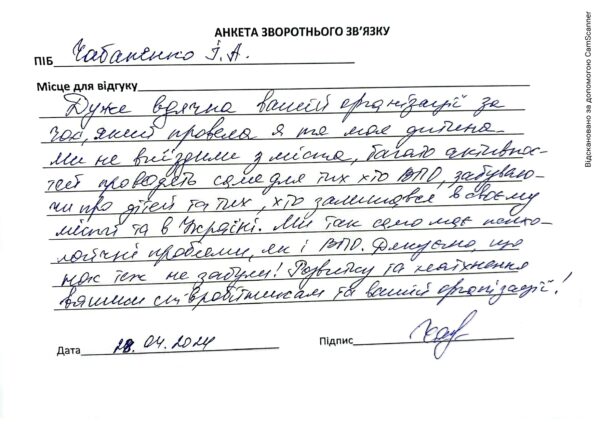 АНКЕТА ЗВОРОТНЬОГО ЗВ'ЯЗКУ
ПІБ Чабаненко І. А.
Місце для відгуку
Дуже вдячна вашій організації за
час, який провела я та моя дитина.
Ми не виїздили з міста, багато активнос-
тей проводять саме для тих хто ВПО, забуваю-
чи про дітей та тих, хто залишався в своєму
місті та в Україні. Ми так само має психо-
логічні проблеми, як і ВПО. Дякуємо, що
нас теж не забули! Розвитку та натхнення
вашим співробітникам та вашій організації!
Дата 28.04.2024 Підпис
Відскановано за допомогою CamScanner